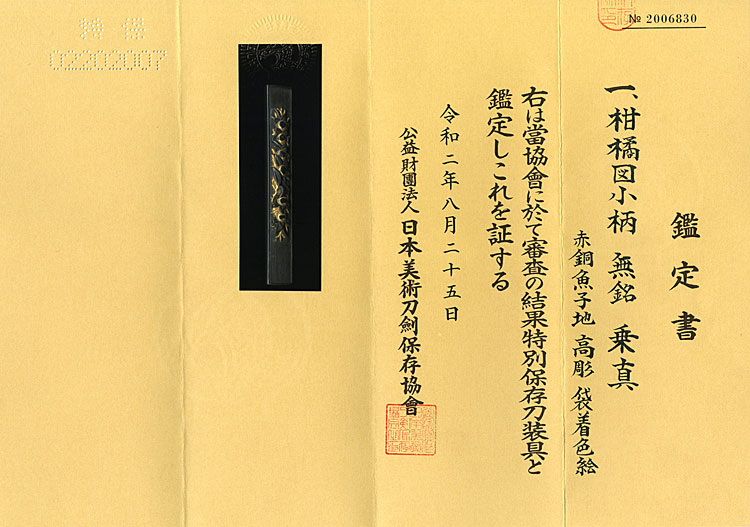 № 2006830
鑑定書
一、柑橘図小柄 無銘 乗真
赤銅魚子地 高彫 袋着色絵
右は當協會に於て審査の結果特別保存刀装具と
鑑定しこれを証する
令和二年八月二十五日
公益財團法人 日本美術刀劍保存協會
02202007